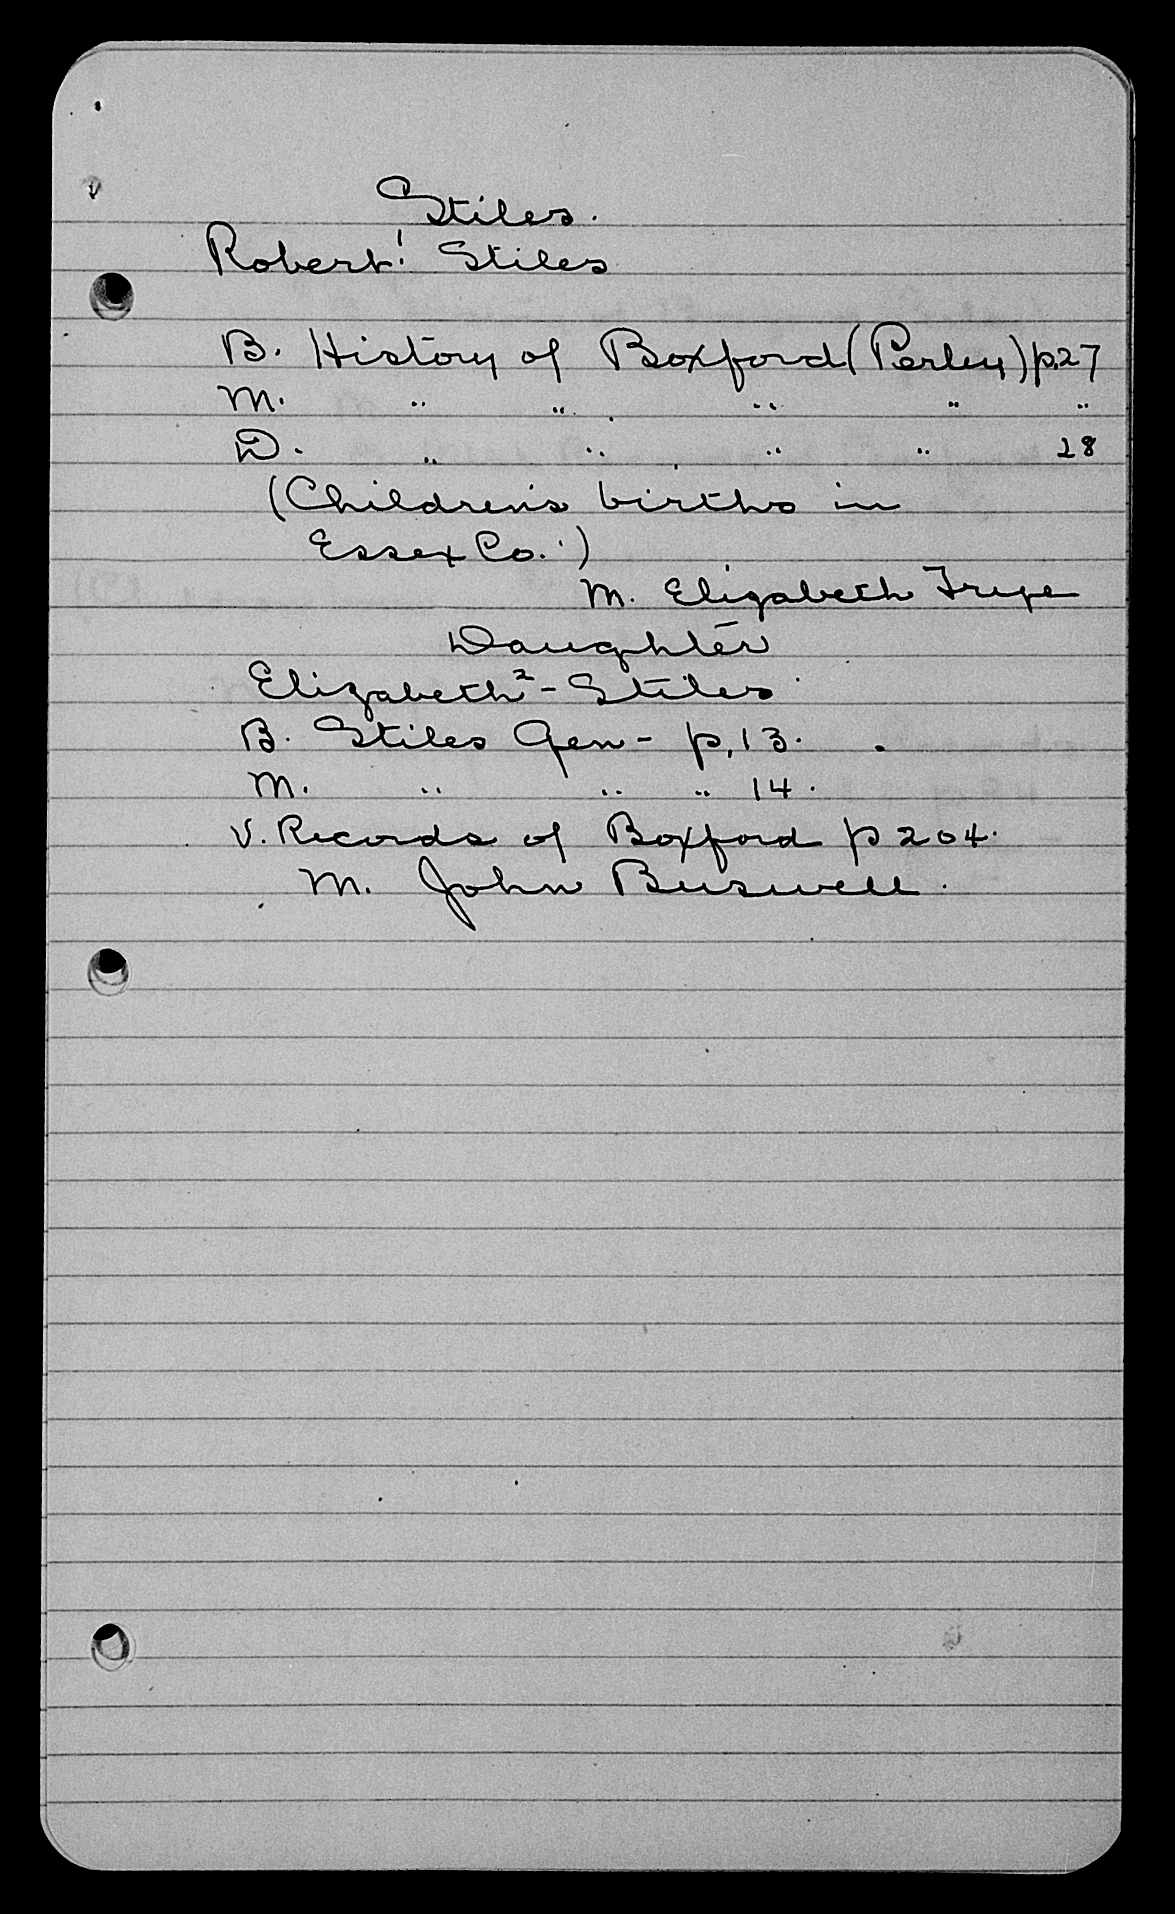 Stiles.
Robert¹ Stiles
B. History of Boxford (Perley) p.27
M. " " " " "
D. " " " " 28
(Children's births in
Essex Co.)
M. Elizabeth Frye
Daughter
Elizabeth² - Stiles
B. Stiles Gen - p. 13.
M. " " " 14.
V. Records of Boxford p 204.
M. John Buswell.